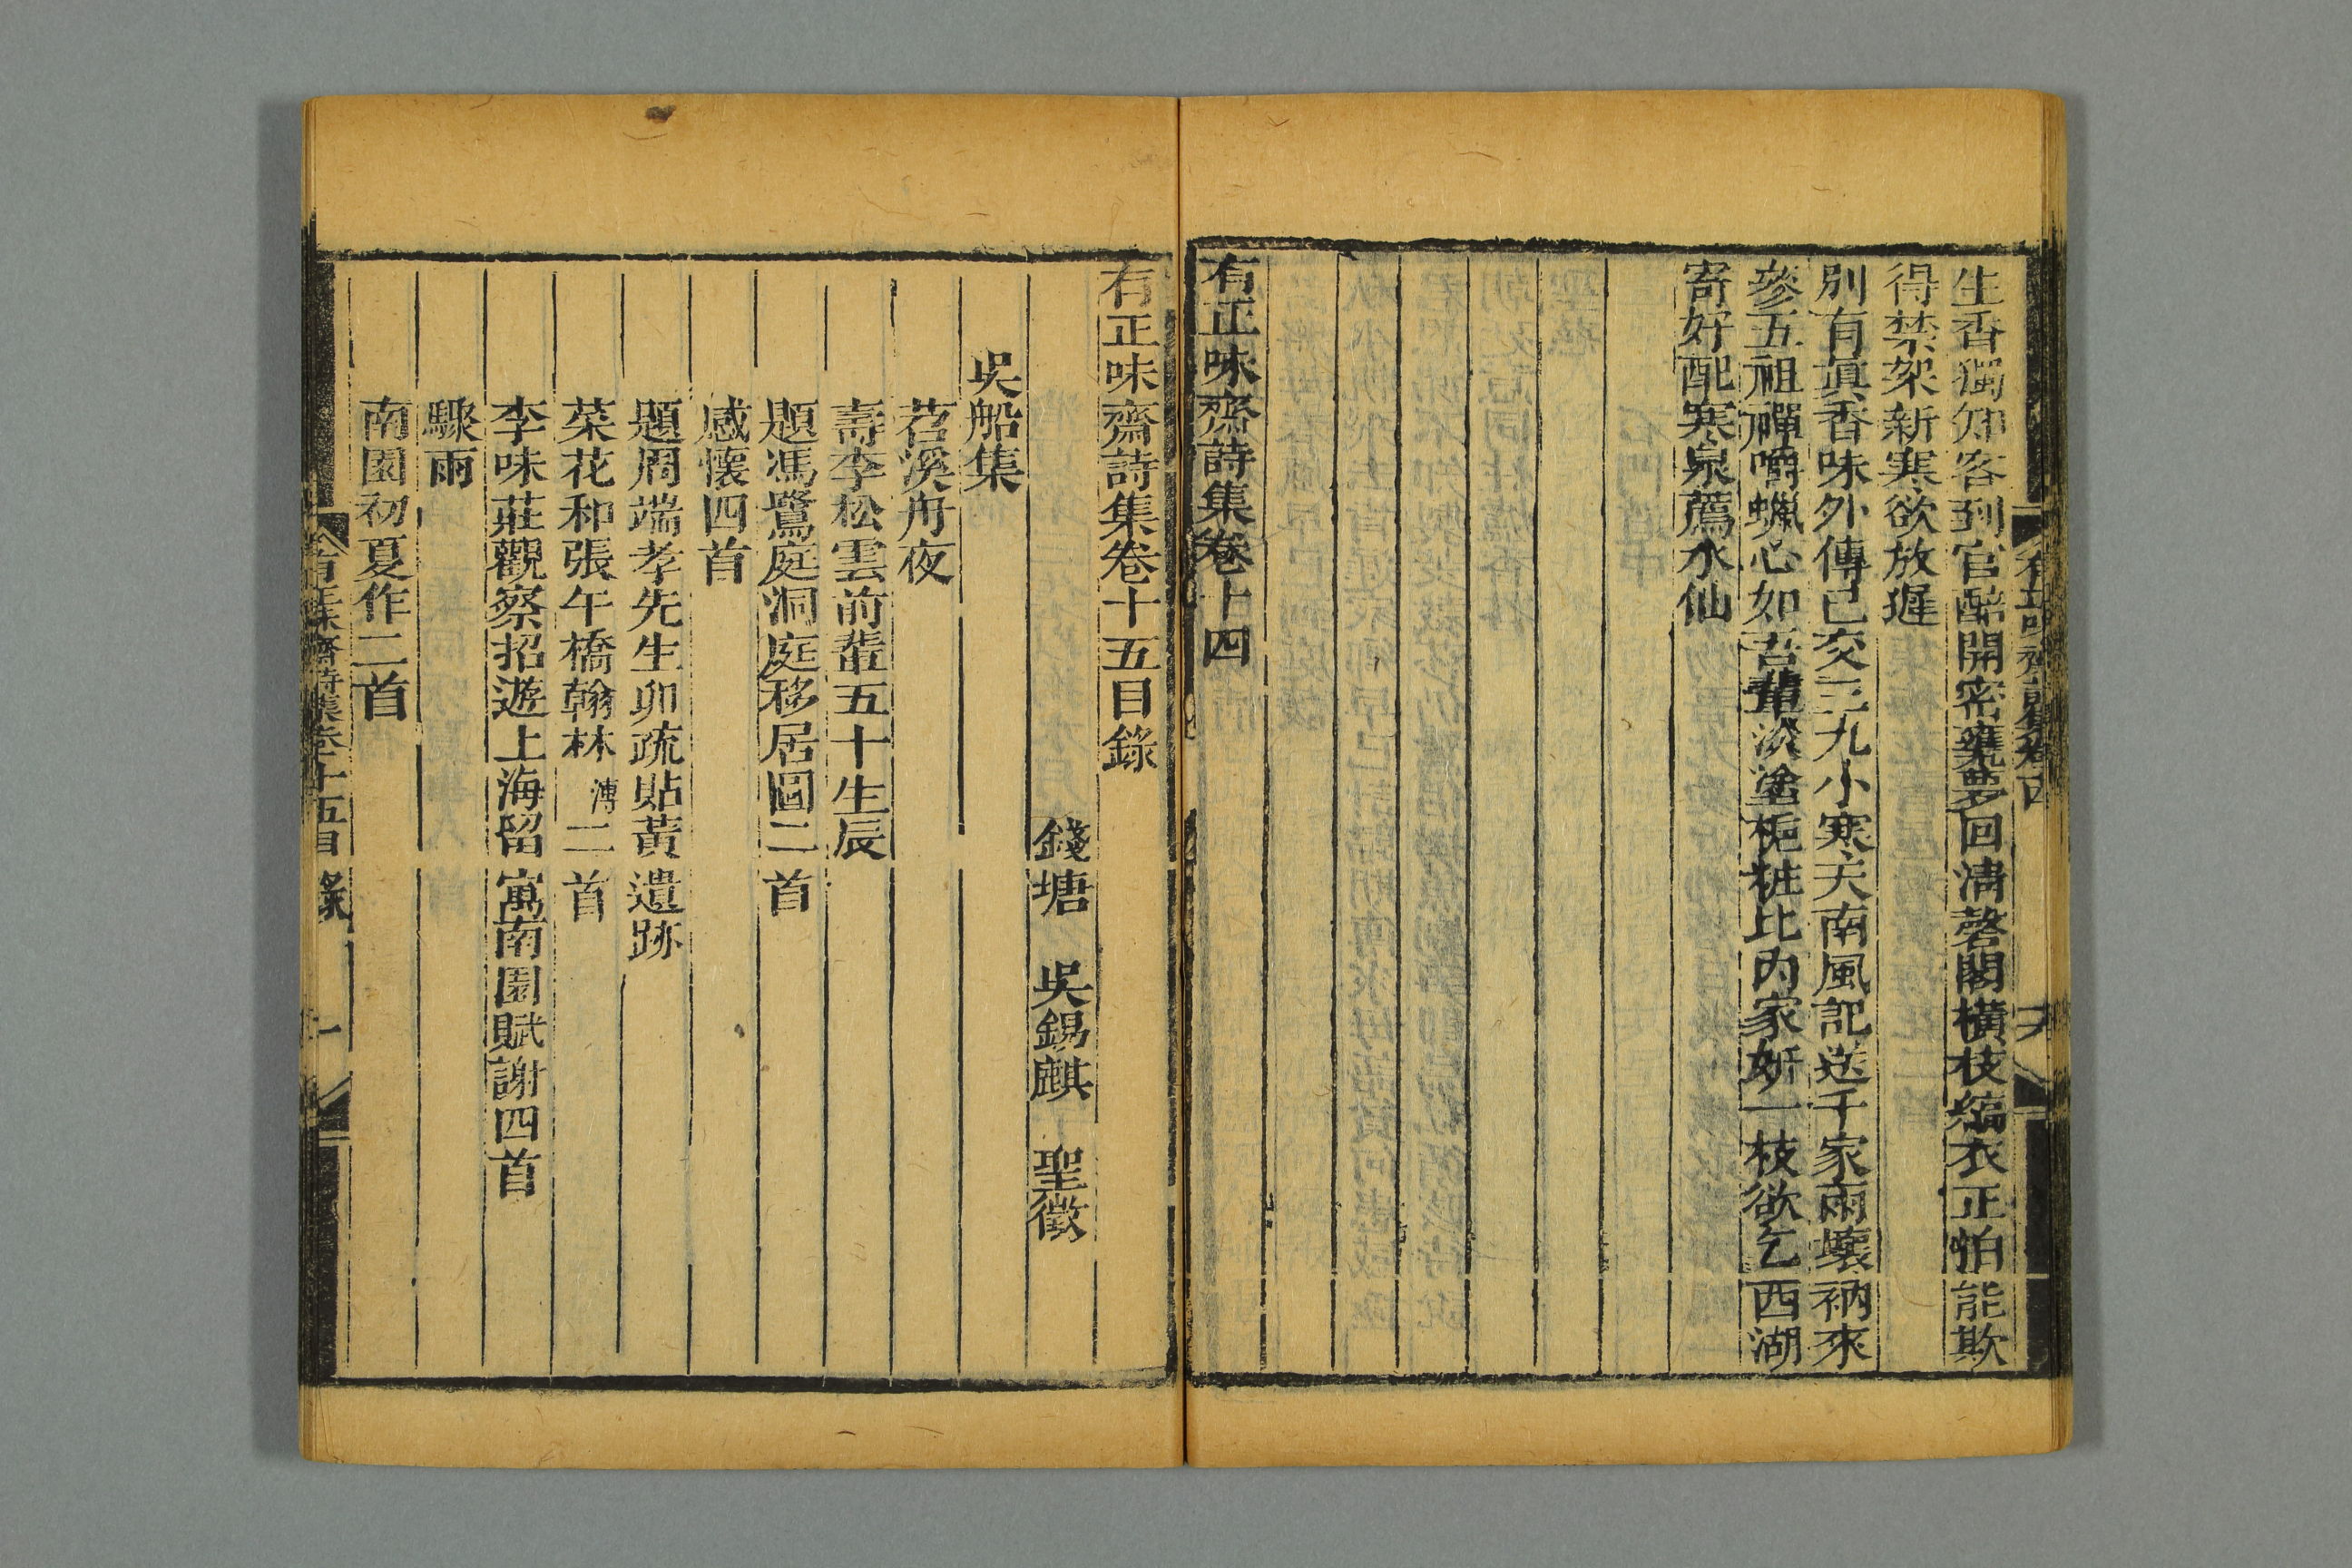 生香獨知客到官醅開密甕夢回淸磬閣橫枝縞衣正怕能欺
得禁架新寒欲放遲
別有眞香味外傳已交三九小寒天南風記送千家雨壞衲來
參五祖禪嚼蠟心如吾輩淡塗梔粧比內家姸一枝欲乞西湖
寄好配寒泉薦水仙
有正味齋詩集卷十四
有正味齋詩集卷十五目錄
錢塘 吳錫麒 聖徵
吳船集
苕溪舟夜
壽李松雲前輩五十生辰
題馮鷺庭洞庭移居圖二首
感懷四首
題周端孝先生卯疏貼黃遺跡
菜花和張午橋翰林溥二首
李味莊觀察招遊上海留寓南園賦謝四首
驟雨
南園初夏作二首
有正味齋詩集卷十五目錄 一